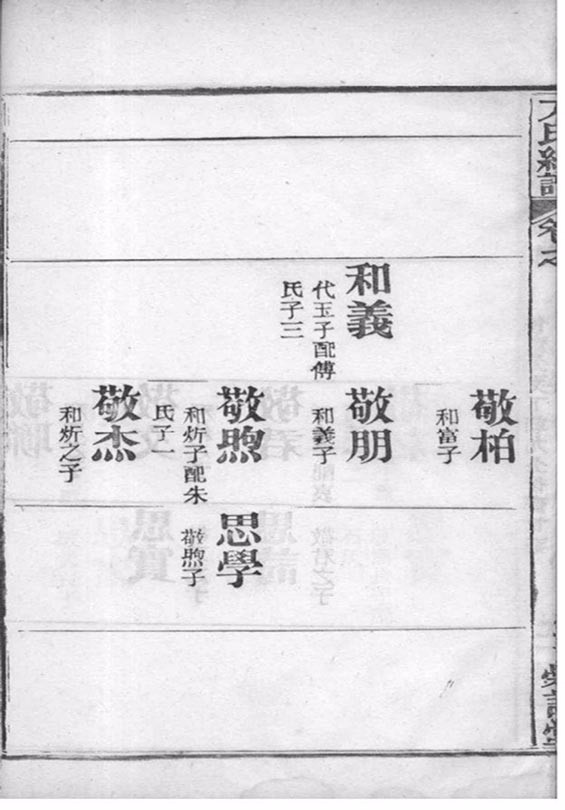 氏
卷之
敬柏
和富子
和義
代玉子配傅
氏子三
敬朋
和義子
敬煦
和炘子配朱
氏子一
思學
敬煦子
敬杰
和炘之子